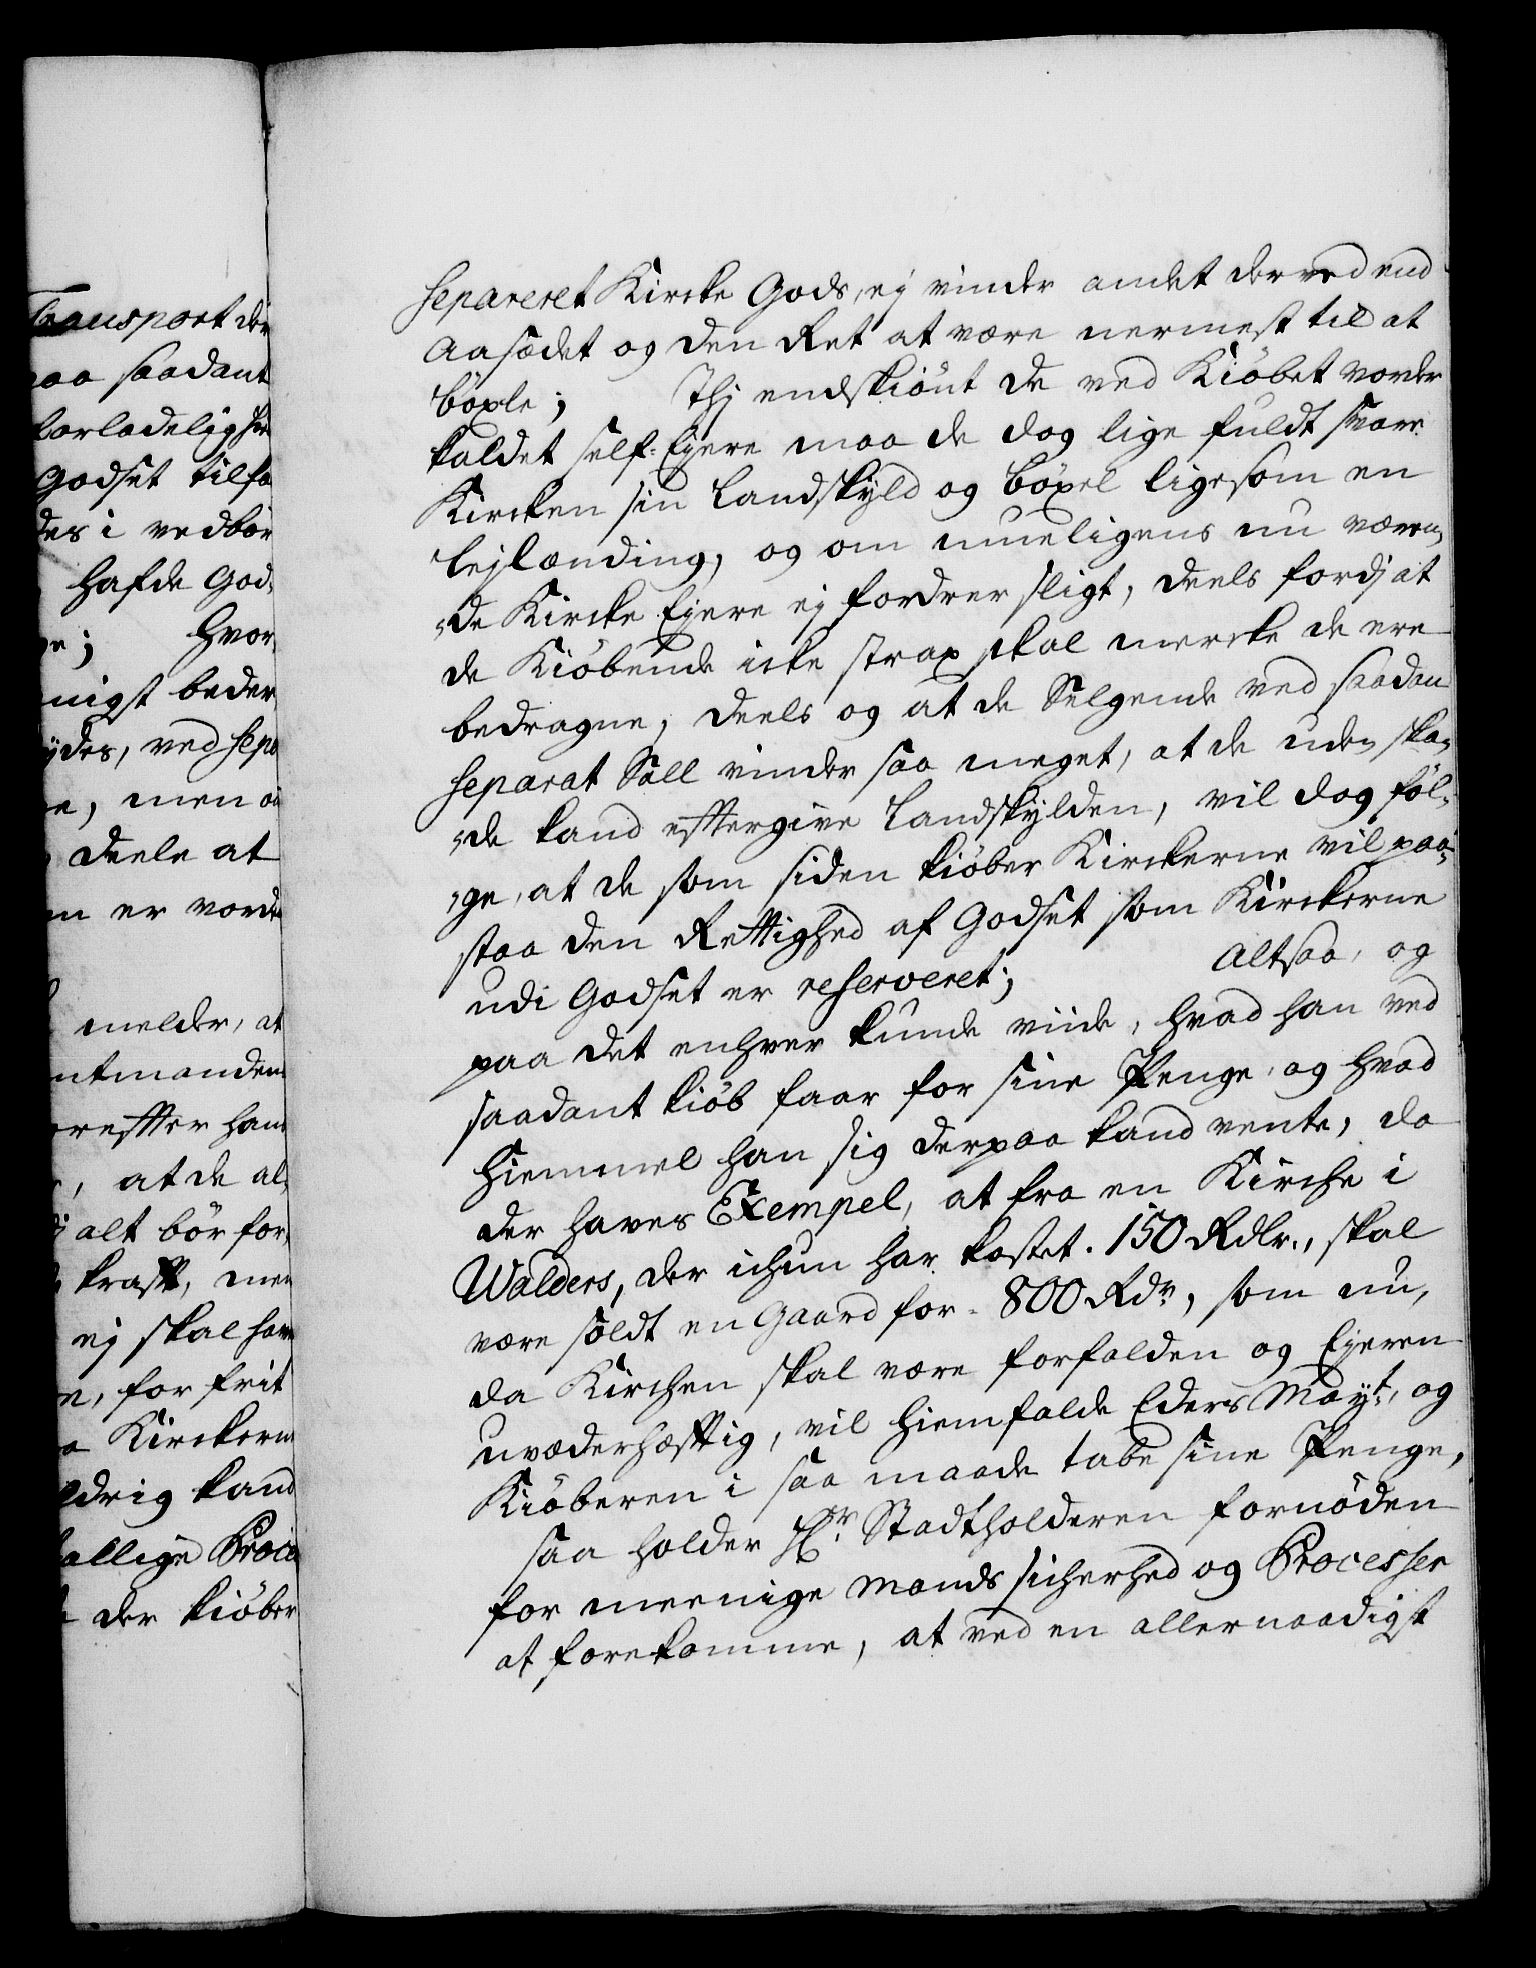 Transport der
paa saadant
forladelighed
Godset tilfa
des i vedbör
hafde God„
ge; hvor„
nigst beder
ÿdes, ved sepa
e, men a
deele at
m er vorde
melder, at
ntmanden
reffter ham
, at de al„
alt bör for„
krafft, men
ej skal hav
e, for frit
Kirckern
ldrig kand
fallige Proce
der kiöber
separeret Kircke Gods, ej vinder andet derved end
Aasædet og den Ret at være nermest til at
böxle; Thj endskiönt de ved Kiöbet vorder
kaldet self-Eyere maa de dog lige fuldt svare
Kircken sin Landskyld og böxel ligesom en
Lejlænding, og om mueligens nu væren„
„de Kircke Eyere ej fordrer sligt, deels fordj at
de Kiöbende icke strax skal mercke de ere
bedragne, deels og at de Selgende ved saadan
separat Sall vinder saa meget, at de uden ska„
„de kand efftergive Landskylden, vil dog föl„
„ge, at de som siden kiöber Kirckerne vil paa„
staa den Rettighed af Godset som Kirckerne
udi Godset er reserveret; Altsaa, og
paa det enhver kunde viide, hvad han ved
saadant kiöb faar for sine Penge, og hvad
Hiemmel han sig derpaa kand vente, da
der haves Exempel, at fra en Kirche i
Walders, der ichun har kostet 150 Rdlr., skal
være soldt en Gaard for 800 Rdr, som nu,
da Kirchen skal være forfalden og Eyeren
uvæderhæfftig, vil hiemfalde Eders Mayt, og
Kiöberen i saa maade tabe sine Penge,
saa holder Hr Stadtholderen fornöden
for meenige Mands sicherhed og Processer
at forekomme, at ved en allernaadigst